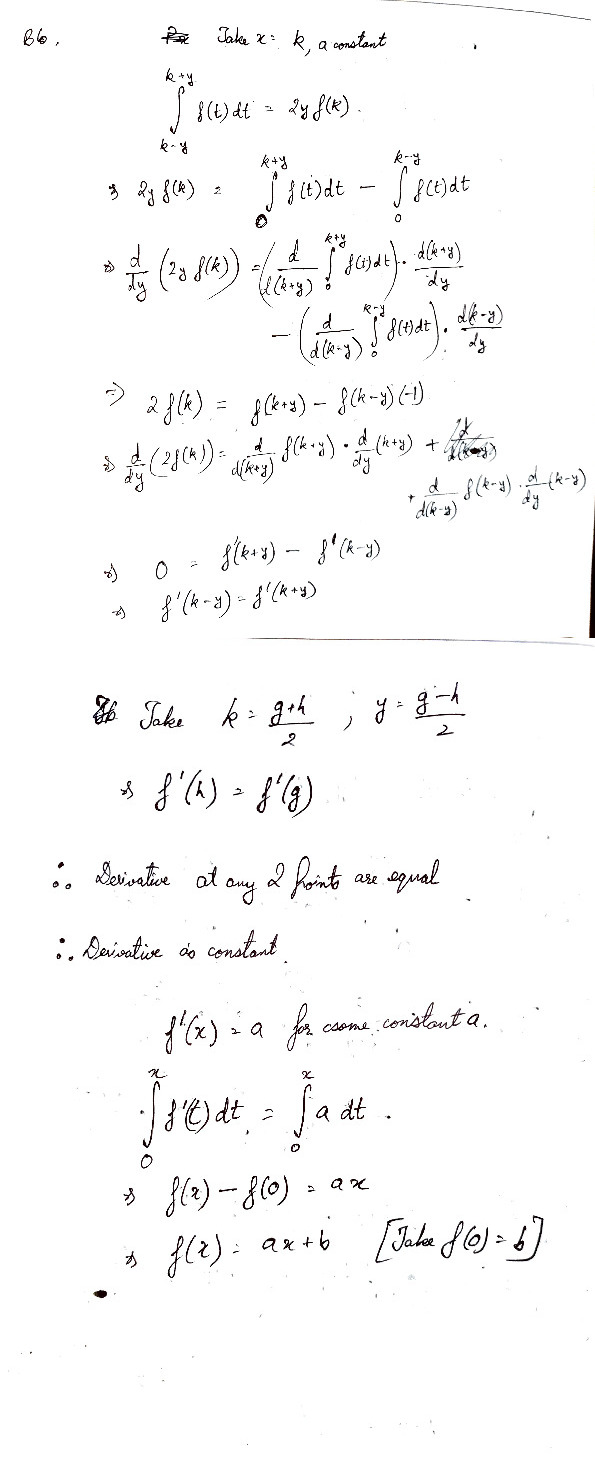 B6. Take x = k, a constant
∫_{k-y}^{k+y} f(t) dt = 2y f(k).
⇒ 2y f(k) = ∫_0^{k+y} f(t) dt − ∫_0^{k-y} f(t) dt
⇒ d/dy (2y f(k)) = (d/d(k+y) ∫_0^{k+y} f(t) dt) · d(k+y)/dy
− (d/d(k-y) ∫_0^{k-y} f(t) dt) · d(k-y)/dy
⇒ 2 f(k) = f(k+y) − f(k-y) (-1)
⇒ d/dy (2f(k)) = d/d(k+y) f(k+y) · d/dy (k+y) +
+ d/d(k-y) f(k-y) · d/dy (k-y)
⇒ 0 = f'(k+y) − f'(k-y)
⇒ f'(k-y) = f'(k+y)
Take k = g+h/2 ; y = g-h/2
⇒ f'(h) = f'(g)
∴ Derivative at any 2 points are equal
∴ Derivative is constant.
f'(x) = a for some constant a.
∫_0^x f'(t) dt = ∫_0^x a dt.
⇒ f(x) − f(0) = ax
⇒ f(x) = ax+b [Take f(0) = b]